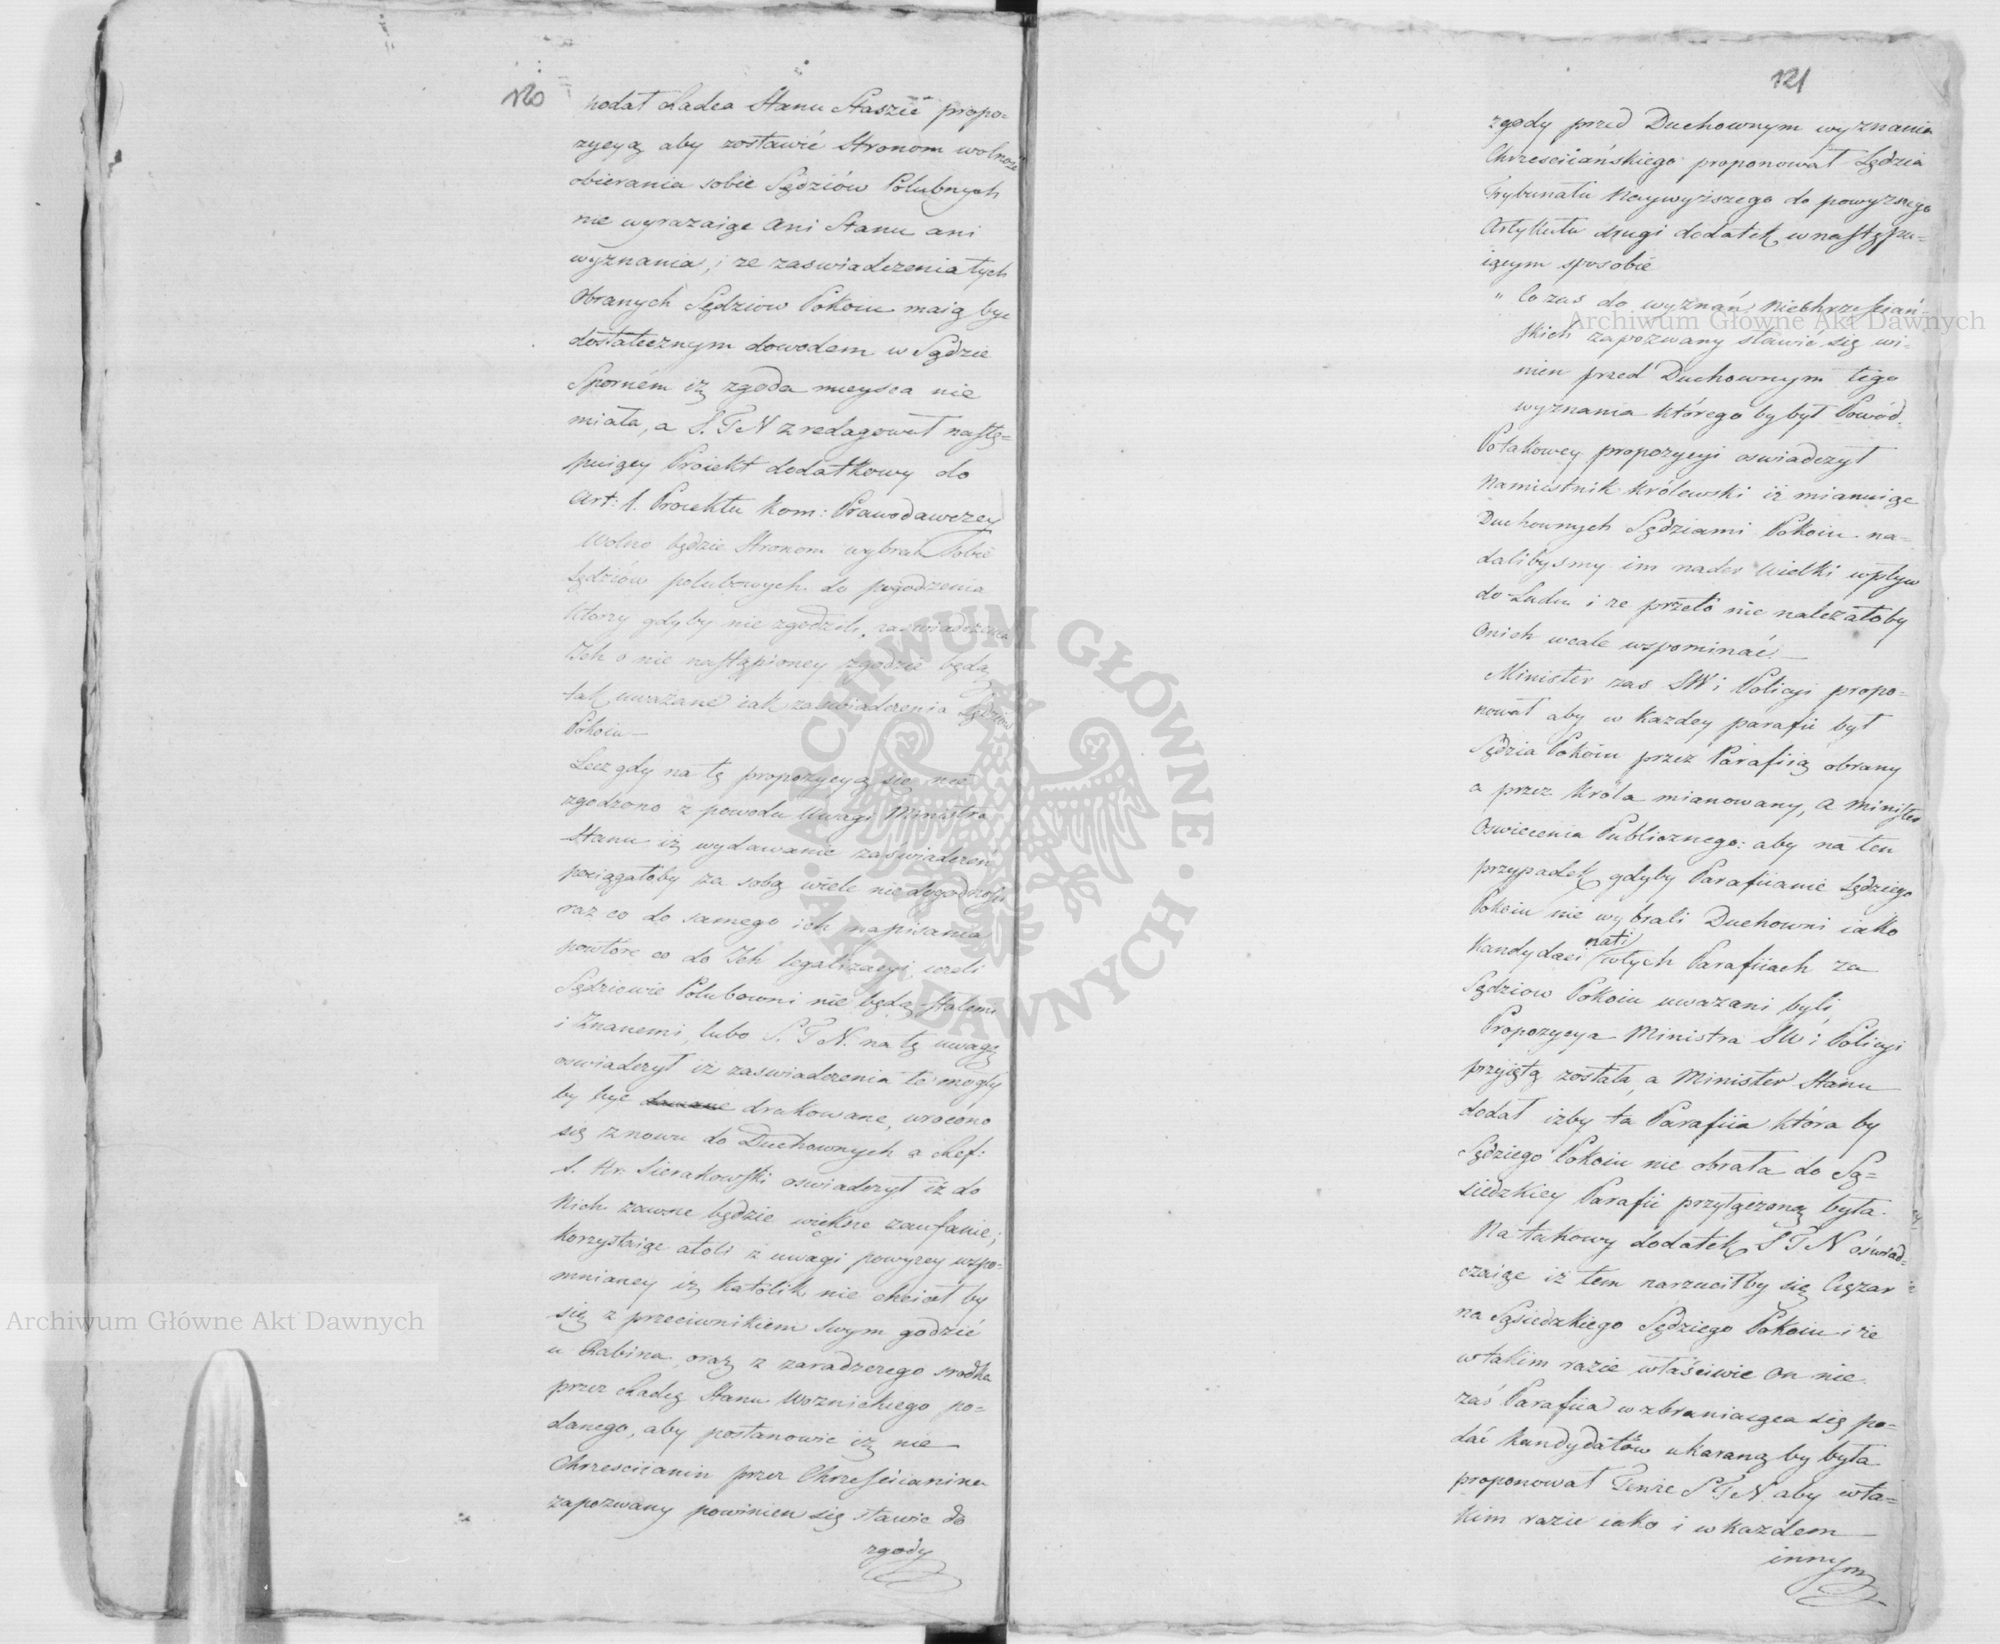 120
podał Radca Stanu Staszic propo-
zycyą aby zostawić Stronom wolność
obierania sobie Sędziów Polubnych
nie wyrazaiąc ani Stanu ani
wyznania, i ze zaswiadczenia tych
Obranych Sędziow Pokoiu maią być
dostatecznym dowodem w Sądzie
Sporném iż zgoda mieysca nie
miała, a S. T N zredagował nastę-
puiący Proiekt dodatkowy do
Art: 1. Proiektu Kom: Prawodawczey
Wolno będzie Stronom wybrać sobie
Sędziów polubowych do pogodzenia
Ktorzy gdyby nie zgodzili, zaswiadczenia
Ich o nie nastąpioney zgodzie będą
tak uważane iak zaswiadczenia Sędziow
Pokoiu—
Lecz gdy na tę propozycyą się nie
zgodzono z powodu Uwagi Ministra
Stanu iż wydawanie zaswiadczeń
pociągałoby za sobą wiele niedogodnosci
raz co do samego ich napisania
powtore co do Ich legalizacyi, ieżeli
Sędziowie Polubowni nie będą stałemi
i Znanemi, lubo S. T N. na tę uwagę
oswiadczył iż zaswiadczenia te mogły
by być drukowane, wrocono
się znowu do Duchownych a Ref:
S. Hr. Sierakowski oswiadczył iż do
Nich zawsze będzie większe zaufanie;
korzystaiąc atoli z uwagi powyzey wspo-
mnianey iż Katolik nie chciał by
się z przeciwnikiem swym godzić
u Rabina, oraz z zaradczego srodka
przez Radcę Stanu Woznickiego po-
danego, aby postanowic iż nie
Chrzesciianin przez Chrzescianina
zapozwany powinien się stawic do
zgody
121
zgody przed Duchownym wyznania
Chrzesciiańskiego proponował Sędzia
Trybunału Naywyższego do powyzszego
Artykułu drugi dodatek w nastgpu-
iącym sposobie
" Co zas do wyznań Niechrzescian-
skich zapozwany stawic się wi-
nien przed Duchownym tego
wyznania którego by był Powód.
Po takowey propozycyi oswiadczył
Namiestnik Królewski iż mianuiąc
Duchownych Sędziami Pokoiu na-
dalibysmy im nader wielki wpływ
do Ludu i ze przeto nie należałoby
Onich wcale wspominać.—
Minister zas SW i Policyi propo-
nował aby w każdey parafii był
Sędzia Pokoiu przez Parafiią obrany
a przez Króla mianowany, a Minister
Oswiecenia Publicznego: aby na ten
przypadek gdyby Parafiianie Sędziego
Pokoiu nie wybrali Duchowni iako
Kandydaci nati w tych Parafiiach za
Sędziow Pokoiu uwazani byli,
Propozycya Ministra SW i Policyi
przyiętą została, a Minister Stanu
dodał izby ta Parafiia która by
Sędziego Pokoiu nie obrała do Są-
siedzkiey Parafii przyłączoną była.
Na takowy dodatek S T N oświad-
czaiąc iż tem narzuciłby się Ciężar
na Sąsiedzkiego Sędziego Pokoiu i że
w takim razie właściwie on nie
zaś Parafiia wzbraniaiąca się po-
dać Kandydatów ukaraną by była
proponował Tenże S T N. aby w ta-
kim razie iako i w każdem
innym
Archiwum Główne Akt Dawnych
Archiwum Główne Akt Dawnych
ARCHIWUM GŁÓWNE · AKT DAWNYCH ·